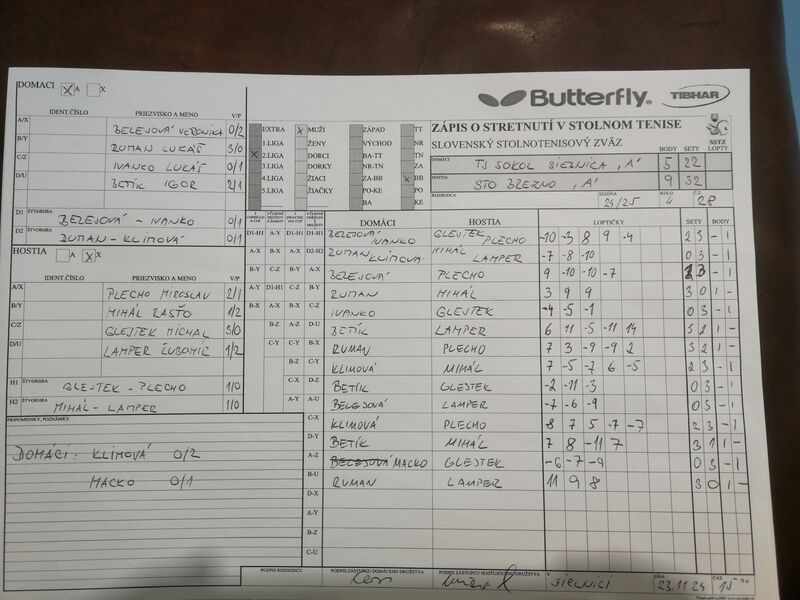 DOMACI X A X
Butterfly. TIBHAR
IDENT.ČÍSLO PRIEZVISKO A MENO V/P
A/X BELEJOVÁ VERONIKA 0/2
B/Y RUMAN LUKÁŠ 3/0
C/Z IVANKO LUKÁŠ 0/1
D/U BETÍK IGOR 2/1
D1 ŠTVORHRA BELEJOVÁ - IVANKO 0/1
D2 ŠTVORHRA RUMAN - KLIMOVÁ 0/1
HOSTIA A X X
IDENT.ČÍSLO PRIEZVISKO A MENO V/P
A/X PLECHO MIROSLAV 2/1
B/Y MIHÁL RASŤO 1/2
C/Z GLEJTEK MICHAL 3/0
D/U LAMPER ĽUBOMÍR 1/2
H1 ŠTVORHRA GLEJTEK - PLECHO 1/0
H2 ŠTVORHRA MIHÁL - LAMPER 1/0
PRIPOMIENKY, POZNÁMKY
DOMÁCI: KLIMOVÁ 0/2
MACKO 0/1
EXTRA X MUŽI ZÁPAD TT
1.LIGA ŽENY VÝCHOD NR
X 2.LIGA DORCI BA-TT TN
3.LIGA DORKY NR-TN ZA
4.LIGA ŽIACI ZA-BB X BB
5.LIGA ŽIAČKY PO-KE PO
BA KE
ZÁPIS O STRETNUTÍ V STOLNOM TENISE
SLOVENSKÝ STOLNOTENISOVÝ ZVÄZ
SSTZ
BODY SETY LOPTY
DOMÁCI TJ SOKOL SIELNICA "A" 5 22
HOSTIA STO BREZNO "A" 9 32
ROZHODCA SEZÓNA 24/25 KOLO 4 Č.Z. 28
DOMÁCI HOSTIA LOPTIČKY SETY BODY
D1-H1 A-Y D1-H1 D1-H1 BELEJOVÁ IVANKO GLEJTEK PLECHO -10 -3 8 9 -4 2 3 - 1
A-X B-X A-X D2-H2 RUMAN KLIMOVÁ MIHÁL LAMPER -7 -8 -10 0 3 - 1
B-Y C-Z B-Y A-X BELEJOVÁ PLECHO 9 -10 -10 -7 1 3 - 1
A-Y D1-H1 C-Z B-Y RUMAN MIHÁL 3 9 9 3 0 1 -
B-X A-X B-X C-Z IVANKO GLEJTEK -4 -5 -1 0 3 - 1
B-Z A-Z D-U BETÍK LAMPER 6 11 -5 -11 14 3 2 1 -
C-Y C-Y B-X RUMAN PLECHO 7 3 -9 -9 2 3 2 1 -
B-Z C-Y KLIMOVÁ MIHÁL 7 -5 -7 6 -5 2 3 - 1
C-X D-Z BETÍK GLEJTEK -2 -11 -3 0 3 - 1
A-Y A-U BELEJOVÁ LAMPER -7 -6 -9 0 3 - 1
C-X KLIMOVÁ PLECHO 8 7 5 -7 -7 2 3 - 1
D-Y BETÍK MIHÁL 7 8 -11 7 3 1 1 -
A-Z BELEJOVÁ MACKO GLEJTEK -6 -7 -9 0 3 - 1
B-U RUMAN LAMPER 11 9 8 3 0 1 -
D-X
A-Y
B-Z
C-U
PODPIS ROZHODCU PODPIS ZÁSTUPCU DOMÁCEHO DRUŽSTVA PODPIS ZÁSTUPCU HOSŤUJÚCEHO DRUŽSTVA V SIELNICI DŇA 23.11.24 ČAS